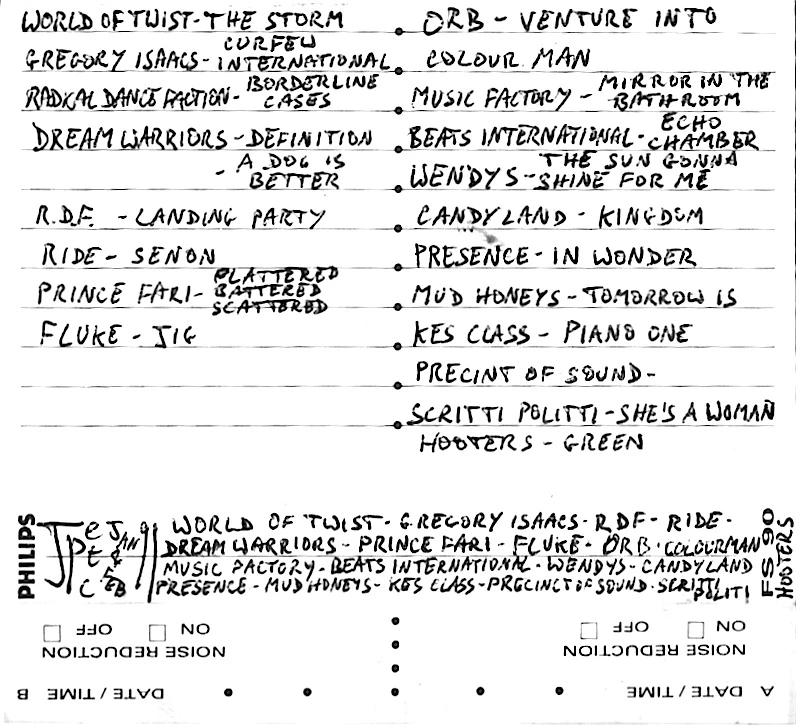 WORLD OF TWIST - THE STORM
GREGORY ISAACS - CURFEW INTERNATIONAL
RADICAL DANCE FACTION - BORDERLINE CASES
DREAM WARRIORS - DEFINITION
- A DOG IS BETTER
R.D.F. - LANDING PARTY
RIDE - SENON
PRINCE FARI - PLATTERED BATTERED SCATTERED
FLUKE - JIG
ORB - VENTURE INTO
COLOUR MAN
MUSIC FACTORY - MIRROR IN THE BATHROOM
BEATS INTERNATIONAL - ECHO CHAMBER
WENDYS - THE SUN GONNA SHINE FOR ME
CANDYLAND - KINGDOM
PRESENCE - IN WONDER
MUD HONEYS - TOMORROW IS
KES CLASS - PIANO ONE
PRECINT OF SOUND -
SCRITTI POLITTI - SHE'S A WOMAN
HOOTERS - GREEN
PHILIPS
JAN & FEB 91
WORLD OF TWIST - GREGORY ISAACS - RDF - RIDE -
DREAM WARRIORS - PRINCE FARI - FLUKE - ORB - COLOURMAN
MUSIC FACTORY - BEATS INTERNATIONAL - WENDYS - CANDYLAND
PRESENCE - MUD HONEYS - KES CLASS - PRECINCT OF SOUND - SCRITTI POLITI
HOOTERS
FS 90
NOISE REDUCTION
ON OFF
NOISE REDUCTION
ON OFF
A DATE / TIME
DATE / TIME B